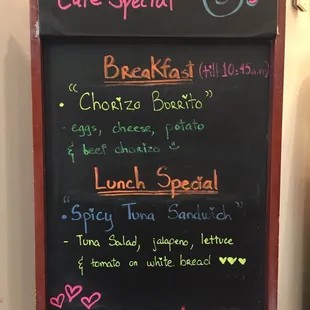 Cafe Special
Breakfast (till 10:45am)
• "Chorizo Borrito"
- eggs, cheese, potato
& beef chorizo
Lunch Special
• "Spicy Tuna Sandwich"
- Tuna Salad, jalapeno, lettuce
& tomato on white bread